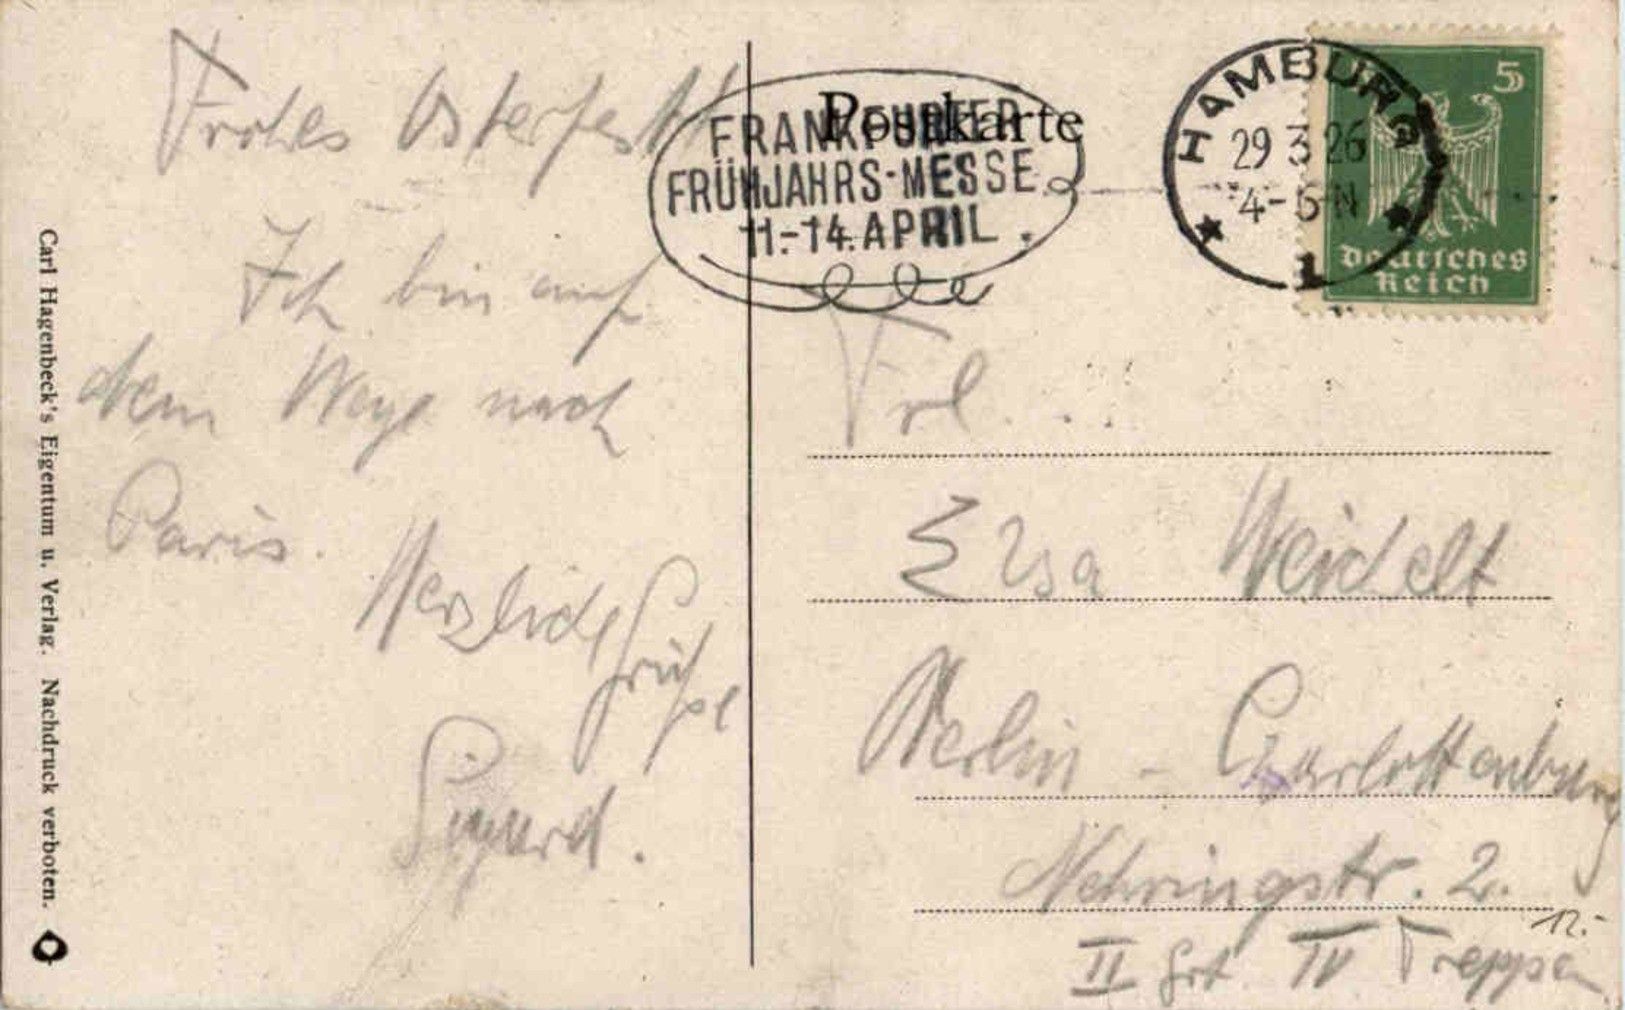 Frohes Osterfest!
Ich bin auf
dem Wege nach
Paris.
Herzliche
Grüße
Sigurd.
Carl Hagenbeck's Eigentum u. Verlag. Nachdruck verboten.
Postkarte
FRANKFURTER
FRÜHJAHRS-MESSE
11.-14. APRIL.
HAMBURG
29 3 26
4-5 N
1
5
Deutsches
Reich
Frl.
Elsa Weidelt
Berlin - Charlottenburg
Nehringstr. 2.
II Grt IV Treppen
12.-